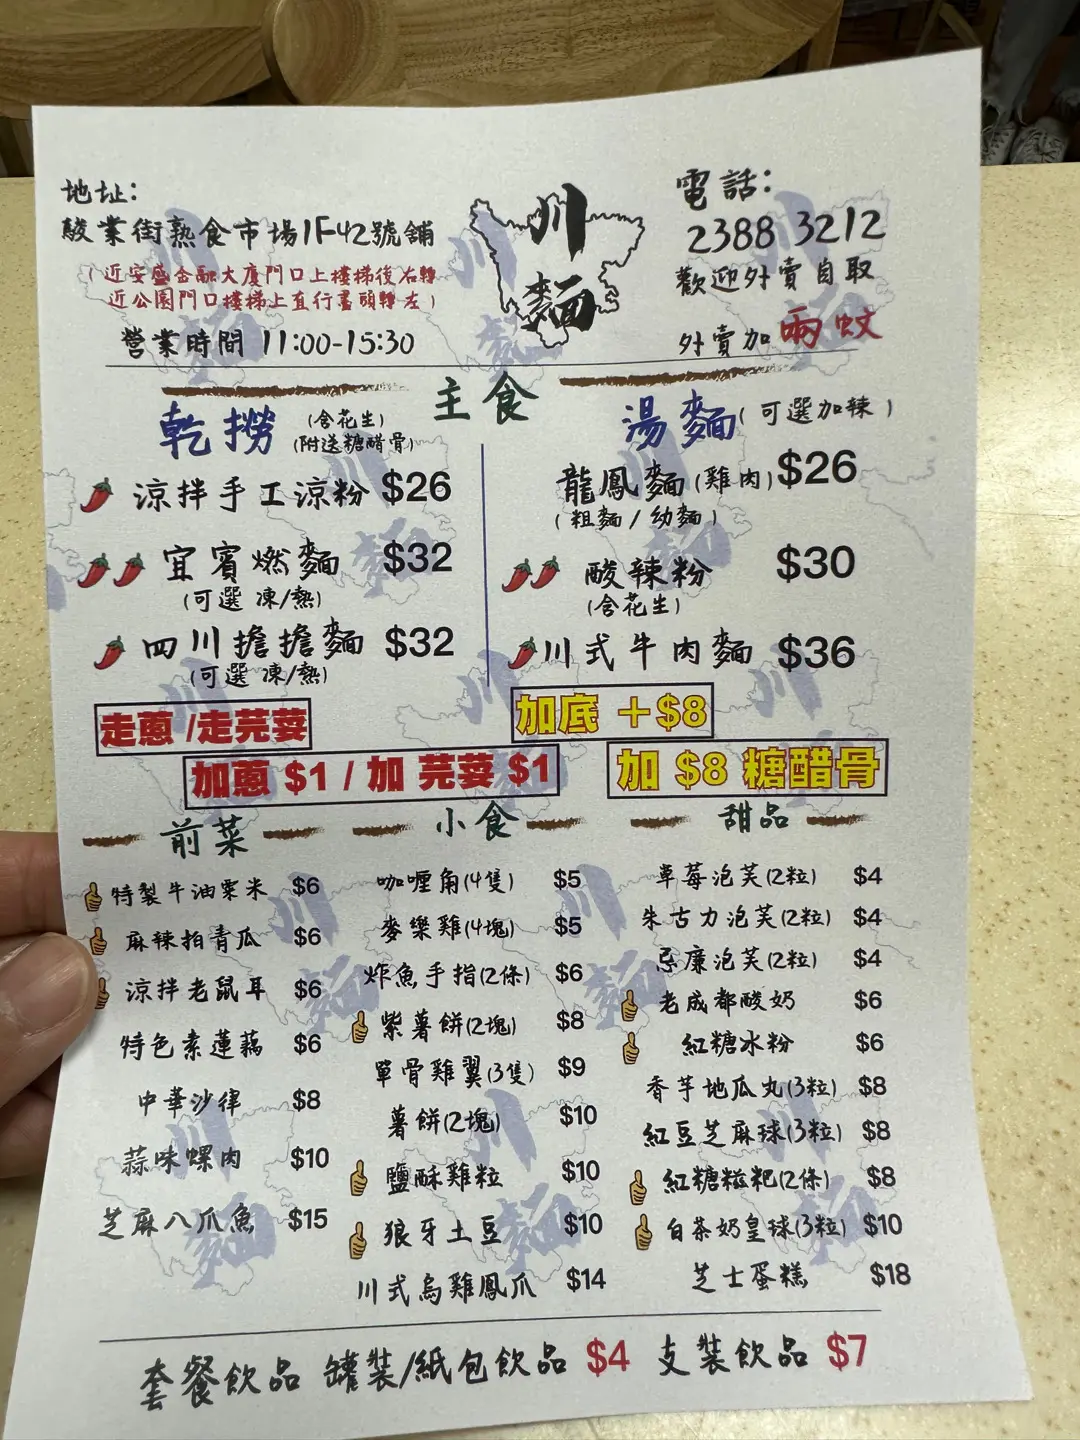 地址:
駿業街熟食市場1F42號舖
(近安盛金融大廈門口上樓梯後右轉
近公園門口樓梯上直行盡頭轉左)
營業時間 11:00-15:30
川
麵
電話:
2388 3212
歡迎外賣自取
外賣加兩蚊
主食
乾撈
(含花生)
(附送糖醋骨)
涼拌手工涼粉 $26
宜賓燃麵 $32
(可選 凍/熱)
四川擔擔麵 $32
(可選 凍/熱)
湯麵(可選加辣)
龍鳳麵(雞肉) $26
(粗麵/幼麵)
酸辣粉 $30
(含花生)
川式牛肉麵 $36
走蔥 /走芫荽
加底 +$8
加蔥 $1 / 加 芫荽 $1
加 $8 糖醋骨
前菜
特製牛油粟米 $6
麻辣拍青瓜 $6
涼拌老鼠耳 $6
特色素蓮藕 $6
中華沙律 $8
蒜味螺肉 $10
芝麻八爪魚 $15
小食
咖喱角(4隻) $5
麥樂雞(4塊) $5
炸魚手指(2條) $6
紫薯餅(2塊) $8
單骨雞翼(3隻) $9
薯餅(2塊) $10
鹽酥雞粒 $10
狼牙土豆 $10
川式烏雞鳳爪 $14
甜品
草莓泡芙(2粒) $4
朱古力泡芙(2粒) $4
忌廉泡芙(2粒) $4
老成都酸奶 $6
紅糖冰粉 $6
香芋地瓜丸(3粒) $8
紅豆芝麻球(3粒) $8
紅糖糍粑(2條) $8
白茶奶皇球(3粒) $10
芝士蛋糕 $18
套餐飲品 罐裝/紙包飲品 $4 支裝飲品 $7